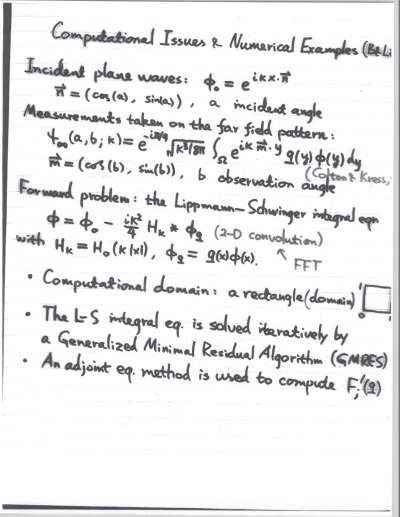 Computational Issues & Numerical Examples (B& Li
Incident plane waves: ϕ₀ = e^{iκx·n⃗}
n⃗ = (cos(a), sin(a)), a incident angle
Measurements taken on the far field pattern:
ψ∞(a,b;κ) = e^{-iπ/4} √(κ³/8π) ∫_Ω e^{iκ m⃗·y} q(y) ϕ(y) dy
m⃗ = (cos(b), sin(b)), b observation angle
(Colton & Kress,
Forward problem: the Lippmann-Schwinger integral eqn
ϕ = ϕ₀ - iκ²/4 H_κ * ϕ_q (2-D convolution)
with H_κ = H₀(κ|x|), ϕ_q = q(x)ϕ(x). ↖ FFT
• Computational domain: a rectangle (domain)
• The L-S integral eq. is solved iteratively by
a Generalized Minimal Residual Algorithm (GMRES)
• An adjoint eq. method is used to compute F_j'(q)